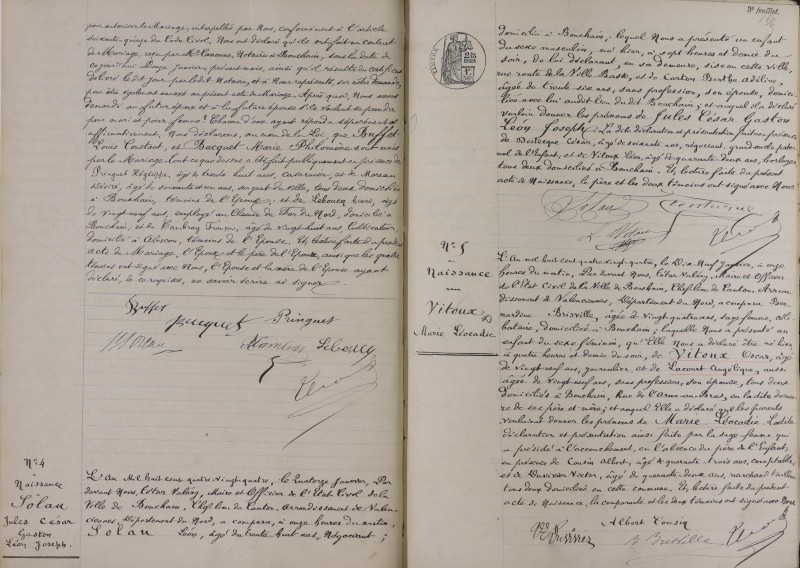 pour autoriser le Mariage, interpellés par Nous, conformément à l'article
soixante-quinze du Code Civil, Nous ont déclaré qu'ils ont fait un contrat
de Mariage, reçu par Me Canonne, Notaire à Bouchain, sous la date
de ce jour Janvier, présent mois, ainsi qu'il résulte du certificat
délivré le dit jour par le dit Notaire, et à Nous représenté, sur notre demande,
pour être également annexé au présent acte de Mariage. Après quoi, Nous avons
demandé au futur époux et à la future épouse s'ils veulent se prendre
pour mari et pour femme? Chacun d'eux ayant répondu séparément et
affirmativement, Nous déclarons, au nom de la Loi, que Buffet
Louis Constant, et Becquet Marie Philomène sont unis
par le Mariage. Tout ce que dessus a été fait publiquement en présence de
Pringuet, âgé de trente huit ans, et de Moreau
Désiré, âgé de soixante et un ans, sergent de ville, tous deux domiciliés
à Bouchain, témoins de l'Epoux; et de Leboucq Henri, âgé
de vingt-neuf ans, employé au Chemin de Fer du Nord, domicilié à
Bouchain, et de Cambray, âgé de vingt-huit ans, Cultivateur,
domicilié à Abscon, témoins de l'Epouse. Et lecture faite du présent
acte de Mariage, l'Epoux et le père de l'Epouse, ainsi que les quatre
témoins ont signé avec Nous, l'Epouse et la mère de l'Epouse ayant
déclaré, de ce requises, ne savoir écrire ni signer.
Buffet
Becquet Pringuet
Moreau Leboucq
N° 4
Naissance
Solau
Jules César
Gaston
Léon Joseph.
L'An Mil huit cent quatre vingt quatre, le Quatorze Janvier, Par
devant Nous, Maire et Officier de l'Etat Civil de la
Ville de Bouchain, Chef-lieu de Canton, Arrondissement de Valen-
ciennes, Département du Nord, a comparu, à onze heures du matin,
Solau Léon, âgé de trente huit ans, Négociant;
3e feuillet.
domicilié à Bouchain; lequel Nous a présenté un enfant
du sexe masculin, né hier, à sept heures et demie du
soir, de lui déclarant, en sa demeure, sise en cette Ville,
rue route de la Ville Basse, et de Carton Berthe Adéline,
âgée de trente six ans, sans profession, son épouse, domici-
liée avec lui audit lieu du dit Bouchain; et auquel il a déclaré
vouloir donner les prénoms de Jules César Gaston
Léon Joseph. Les dites déclaration et présentation faites en présence
de César, âgé de soixante ans, négociant, grand oncle pater-
nel de l'Enfant, et de Vitoux Léon, âgé de quarante deux ans, horloger,
tous deux domiciliés à Bouchain. Et, lecture faite du présent
acte de Naissance, le père et les deux témoins ont signé avec Nous.
Solau
N° 5
Naissance
Vitoux
Marie Léocadie
L'An mil huit cent quatre vingt quatre, le Dix Neuf Janvier, à onze
heures du matin, Par devant Nous, Maire et Officier
de l'Etat Civil de la Ville de Bouchain, Chef lieu de Canton, Arron-
dissement de Valenciennes, Département du Nord, a comparu Ber-
nardine Brisville, âgée de vingt quatre ans, sage femme, céli-
bataire, domiciliée à Bouchain; laquelle Nous a présenté un
enfant du sexe féminin, qu'Elle Nous a déclaré être né hier
à quatre heures et demie du soir, de Vitoux Oscar, âgé
de vingt neuf ans, journalier, et de Lacourt Angélique, aussi
âgée de vingt neuf ans, sans profession, son épouse, tous deux
domiciliés à Bouchain, Rue de l'Arme-au-Bras, en la dite demeu-
re de ses père et mère; et auquel Elle a déclaré que les parents
voulaient donner les prénoms de Marie Léocadie. La dite
déclaration et présentation ainsi faite par la sage femme, qui
a présidé à l'accouchement, en l'absence du père de l'Enfant,
en présence de Cousin Albert, âgé de quarante trois ans, comptable,
et de Duvivier Victor, âgé de quarante deux ans, marchand tailleur,
tous deux domiciliés en cette commune. Et, lecture faite du présent
acte de Naissance, la comparante et les deux témoins ont signé avec Nous.
Albert Cousin
Vr Duvivier B Brisville